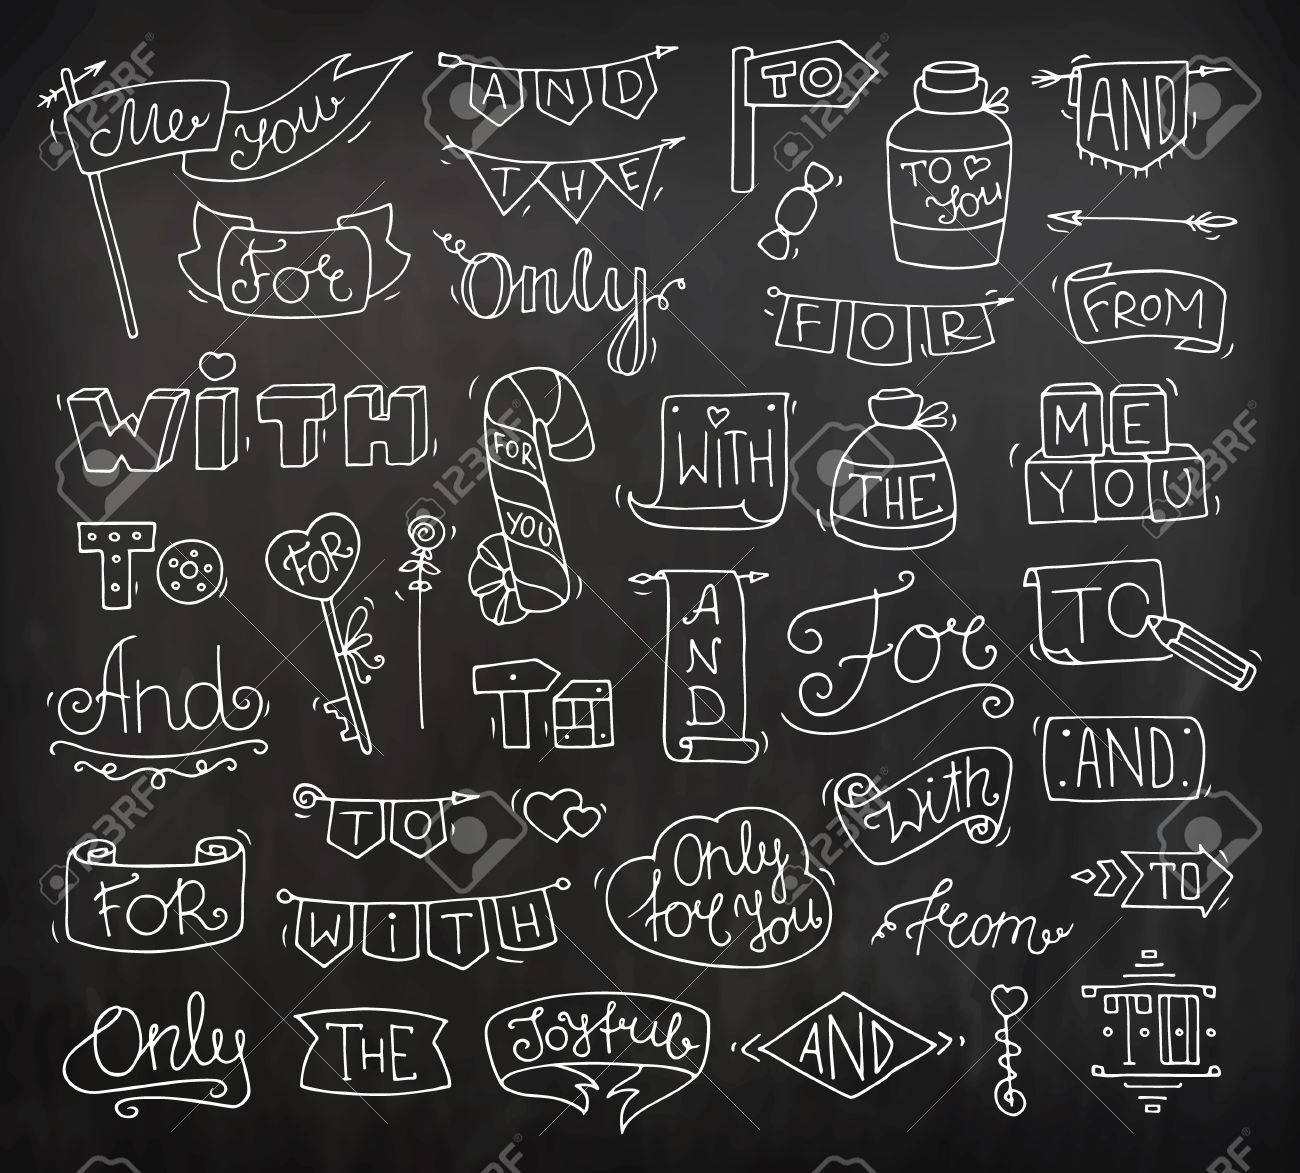 Me
You
AND
TO
AND
THE
TO
You
For
Only
FOR
FROM
WiTH
FOR
YOU
WiTH
THE
ME
YOU
TO
FOR
And
TO
AND
For
TO
AND
TO
With
FOR
WiTH
Only
for you
From
TO
Only
THE
Joyful
AND
TO
123RF